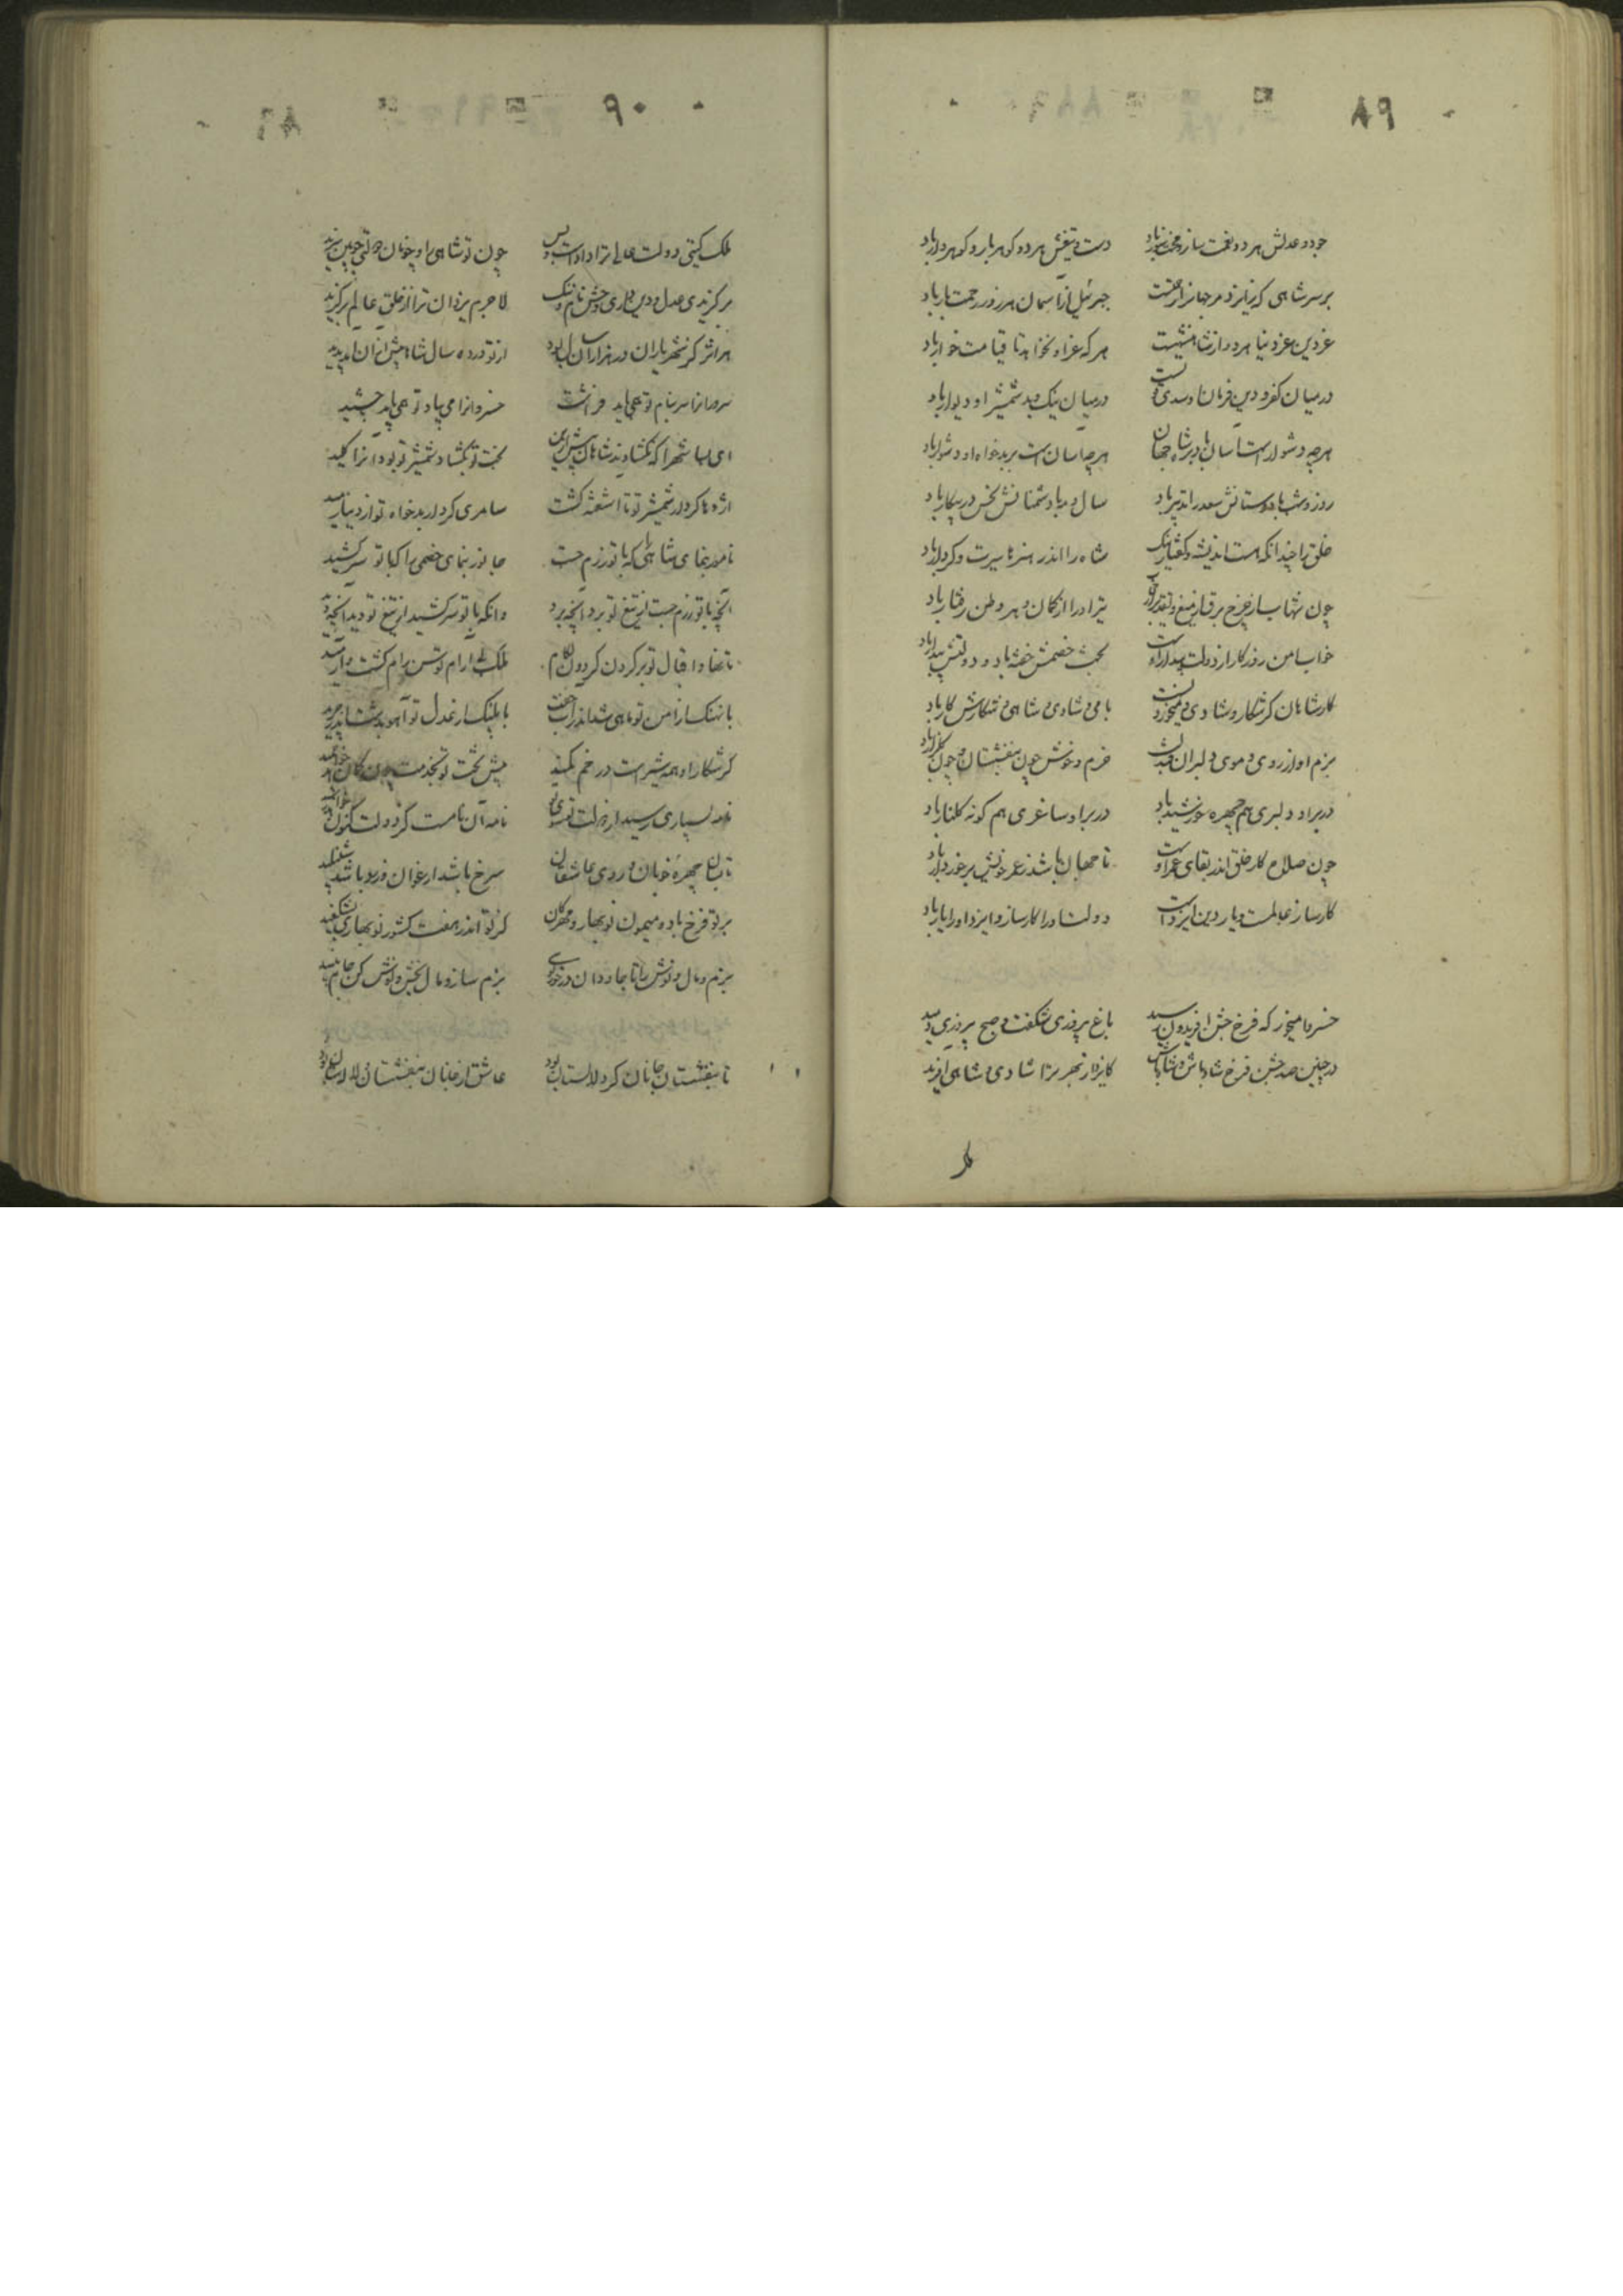 ۸۹
جود و عدلش هر دو نعمت ساز و محنت سوز باد    دست و تیغش هر دو گوهربار و گوهردار باد
بر سر شاهی که نیز او مر جهانرا رحمتست    جبرئیل از آسمان هر روز رحمت بار باد
عز دین و عز دنیا هر دو از شاهنشهیست    هر که عز او نخواهد تا قیامت خوار باد
در میان کفر و دین فرمان او سدی قویست    در میان نیک و بد شمشیر او دیوار باد
هرچه دشوار است آسان باد بر شاه جهان    هرچه آسان است بر بدخواه او دشوار باد
روز و شب با دوستانش سعد را تدبیر باد    سال و مه با دشمنانش نحس در پیکار باد
خلق را چندانکه هست اندیشه و گفتار نیک    شاه را اندر هنرها سیرت و کردار باد
چون شهاب از چرخ و برق از میغ و تقدیر از    تیر او را از کمان و بر وطن رفتار باد
خواب امن روزگار از دولت بیدار اوست    بخت خصمش خفته باد و دولتش بیدار باد
کار شاهان گر شکار و شادی و می خوردنست    با می و شادی و شاهی و شکارش کار باد
بزم او از روی و موی دلبران مجلسش    خرم و خوش چون بنفشستان و چون گلزار باد
در بر او دلبری هم چهره خورشید باد    در بر او ساغری هم گونه گلنار باد
چون صلاح کار خلق اندر بقای عمر اوست    تا جهان باشد ز عمر خویش برخوردار باد
کارساز عالمست و یار دین ایزد است    دولت او را کارساز و ایزد او را یار باد
خسروا میخور که فرخ جشن افریدون رسید    باغ پیروزی شکفت و صبح پیروزی دمید
در چنین صد جشن فرخ شاد باش و شاه باش    کایزد از بهر ترا شادی و شاهی آفرید
ملک
۹۰
ملک گیتی دولت عالی ترا داد است و بس    چون تو شاهی را و چونان دولتی چونین سزید
برگزیدی عدل و دین داری و جشن و نام و ننگ    لاجرم یزدان ترا از خلق عالم برگزید
هر اثر کز شهریاران در هزاران سال بود    از تو در ده سال شاها بیش از آن آمد پدید
سرورانرا سر بنام تو همی باید فراشت    خسروانرا می بیاد تو همی باید چشید
ای بسا شهرا که نگشادند شاهان پیش ازین    بخت تو بگشاد و شمشیر تو بود آنرا کلید
اژدها کردار شمشیر تو تا آشفته گشت    سامری کردار بدخواه تو از دنیا رمید
نامور بنمای شاهی را که با تو رزم جست    جانور بنمای خصمی را که با تو سر کشید
آنچه با تو رزم جست از تیغ تو برد آنچه برد    وانکه با تو سر کشید از تیغ تو دید آنچه دید
تا قضا و اقبال تو بر گردن گردون لگام    ملک بی آرام توسن رام گشت و آرمید
با نهنگ از امن تو ماهی شد اندر آب جفت    با پلنگ از عدل تو آهو بدشت اندر چرید
گر شکار او همه شیر است در خم کمند    پیش تخت تو بخدمت چون کمان خواهد خمید
نامه بسیاری رسید از دولت تو سوی    نامه آن نامست کز دولت کنون خواهد رسید
تا بسان چهره خوبان و روی عاشقان    سرخ باشد ارغوان و زرد باشد شنبلید
بر تو فرخ باد و میمون نوبهار و مهرگان    کز تو اندر هفت کشور نوبهاری بشکفید
بزم و مال و نوش با تا جاودان در خورد    بزم ساز و مال بخش و نوش کن جام نبید
تا بنفشستان جانان گرد لالستان بود    عاشق از جانان بنفشستان و لالستان